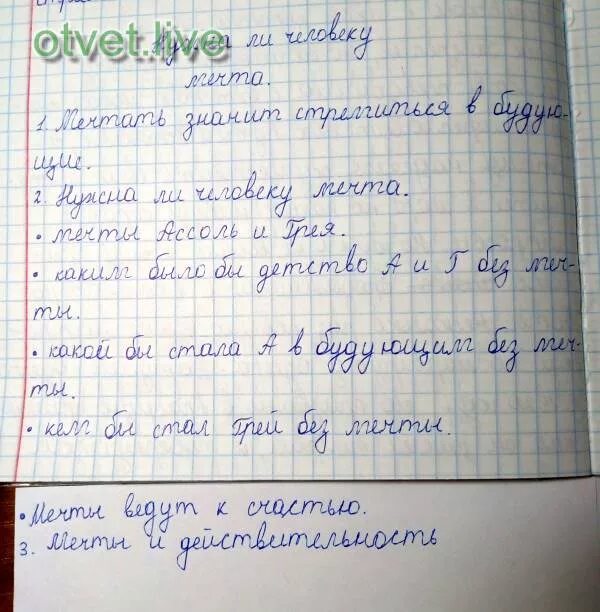 otvet.live
Нужна ли человеку
мечта.
1. Мечтать значит стремиться в будую-
щие.
2. Нужна ли человеку мечта.
• мечты Ассоль и Грея.
• каким было бы детство А и Г без меч-
ты.
• какой бы стала А в будующим без меч-
ты.
• кем бы стал Грей без мечты.
• Мечты ведут к счастью.
3. Мечты и действительность